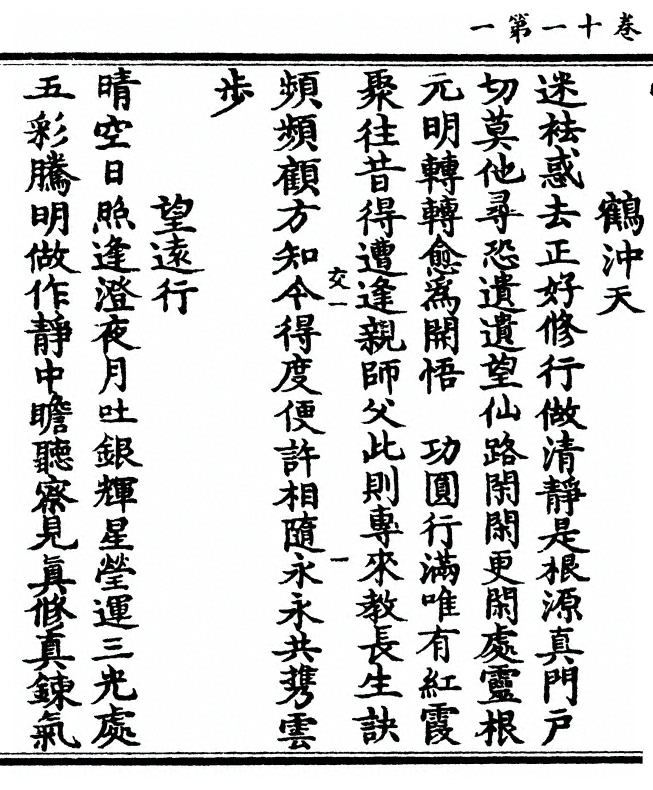 卷十一第一
鶴沖天
迷袪惑去正好修行做清靜是根源真門戶
切莫他尋恐遺遺望仙路閑閑更閑處靈根
元明轉轉愈爲開悟　功圓行滿唯有紅霞
聚往昔得遭逢親師父此則專來教長生訣
頻頻顧方知令得度便許相隨永永共携雲
交一　一
步
望遠行
晴空日煦逢澄夜月吐銀輝星瑩運三光處
五彩騰明做作靜中瞻聽察見真修真鍊氣